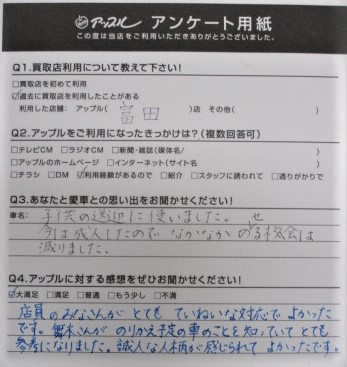 アップル アンケート用紙
この度は当店をご利用いただきありがとうございました。
Q1.買取店利用について教えて下さい!
□買取店を初めて利用
☑過去に買取店を利用したことがある
利用した店舗: アップル( 富田 )店 その他( )
Q2.アップルをご利用になったきっかけは?(複数回答可)
□テレビCM □ラジオCM □新聞・雑誌(媒体名/ )
□アップルのホームページ □インターネット(サイト名 )
□チラシ □DM ☑利用経験があるので □紹介 □スタッフに誘われて □通りがかりで
Q3.あなたと愛車との思い出をお聞かせください!
車名: 子供の送迎に使いました。
今は成人したので なかなか のる機会は
減りました。
Q4.アップルに対する感想をぜひお聞かせください!
☑大満足 □満足 □普通 □もう少し □不満
店員のみなさんが とても ていねいな対応で よかった
です。 さんが のりかえ予定の車のことを知っていて とても
参考になりました。誠人な人柄が感じられて よかったです。